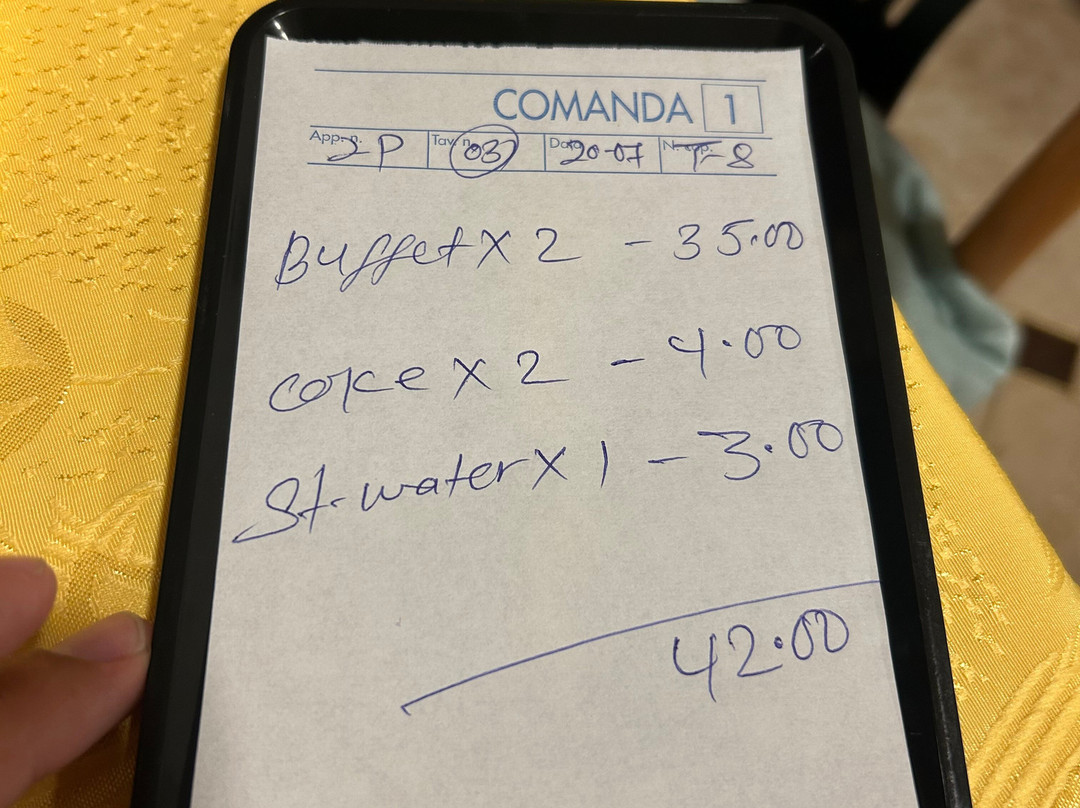 COMANDA 1
App. n. 2P Tav. n. 03 Data 20-07 T-8
Buffet X 2 - 35.00
coke X 2 - 4.00
St. water X 1 - 3.00
42.00